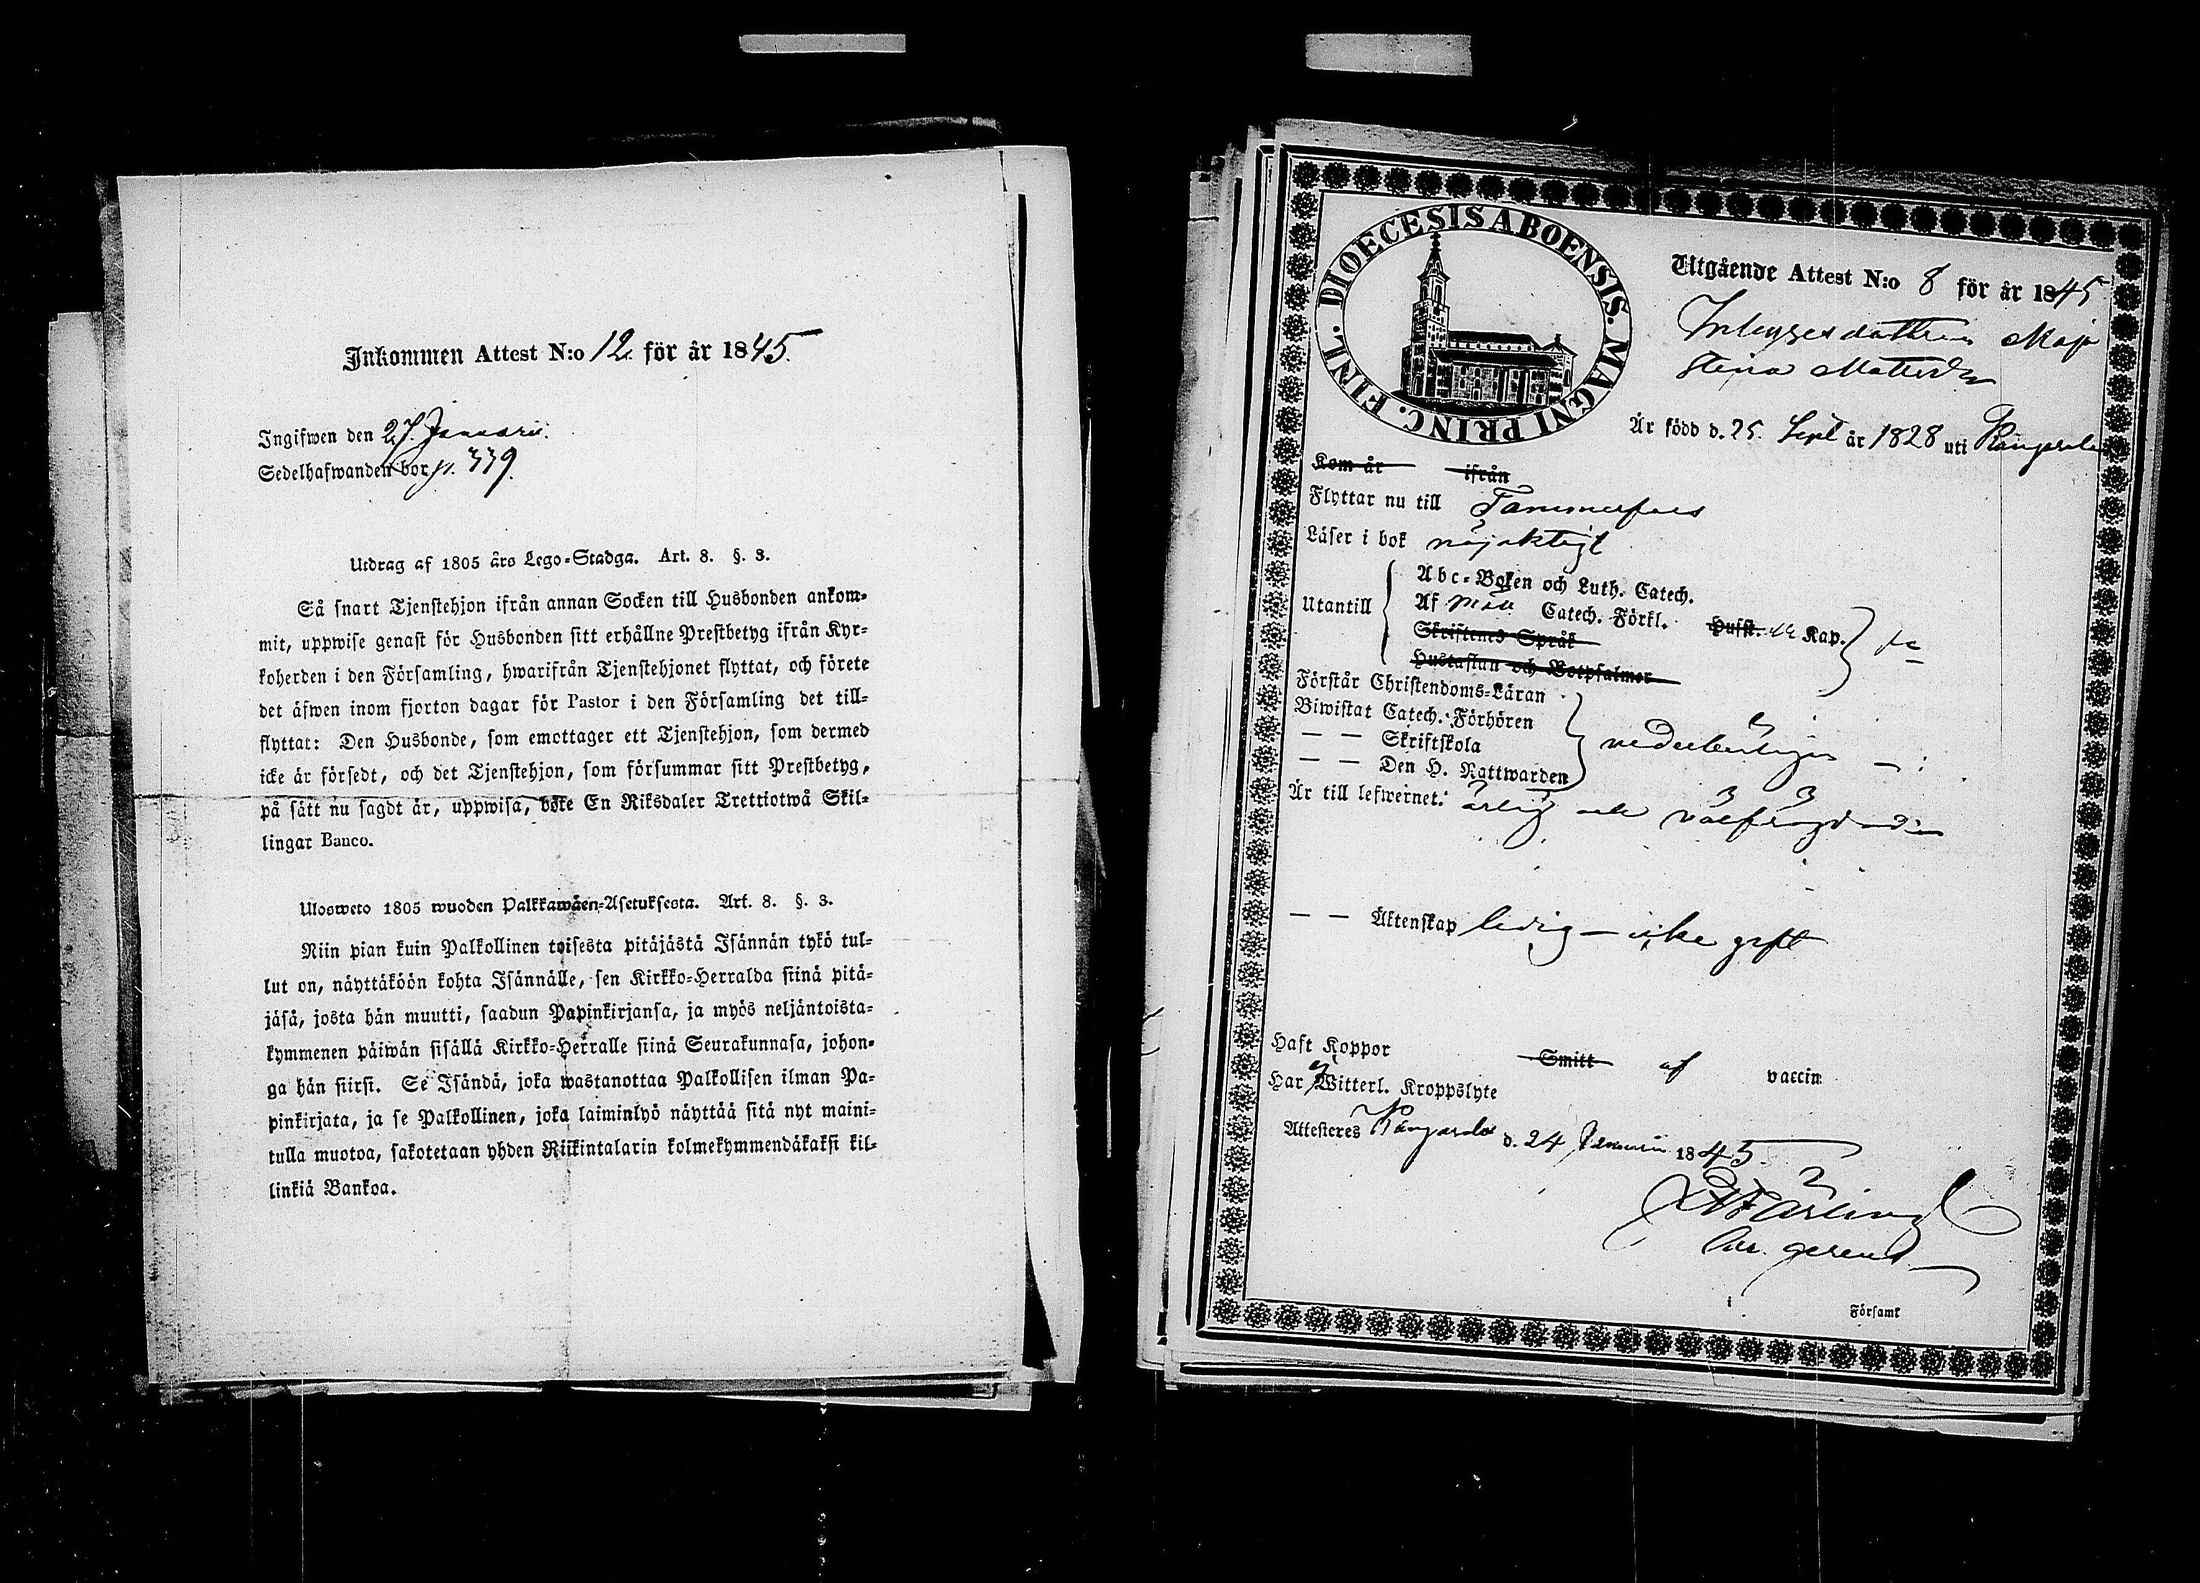 Inkommen Attest N:o 12 för år 1845.
Ingifwen den 27. Januarii.
Sedelhafwanden bor p. 339.
Utdrag af 1805 års Lego-Stadga. Art. 8. §. 3.
Så snart Tjenstehjon ifrån annan Socken till Husbonden ankom-
mit, uppwise genast för Husbonden sitt erhållne Prestbetyg ifrån Kyr-
koherden i den Församling, hwarifrån Tjenstehjonet flyttat, och förete
det äfwen inom fjorton dagar för Pastor i den Församling det till-
flyttat: Den Husbonde, som emottager ett Tjenstehjon, som dermed
icke är försedt, och det Tjenstehjon, som försummar sitt Prestbetyg,
på sätt nu sagdt är, uppwisa, böte En Riksdaler Trettiotwå Skil-
lingar Banco.
Ulosweto 1805 wuoden Palkkawäen-Asetuksesta. Art. 8. §. 3.
Niin pian kuin Palkollinen toisesta pitäjästä Isännän tykö tul-
lut on, näyttäköön kohta Isännälle, sen Kirkko-Herralda siinä pitä-
jäsä, josta hän muutti, saadun Papinkirjansa, ja myös neljäntoista-
kymmenen päiwän sisällä Kirkko-Herralle siinä Seurakunnasa, johon-
ga hän siirsi. Se Isändä, joka wastanottaa Palkollisen ilman Pa-
pinkirjata, ja se Palkollinen, joka laiminlyö näyttää sitä nyt maini-
tulla muotoa, sakotetaan yhden Riikintalarin kolmekymmendäkaksi kil-
linkiä Bankoa.
DIOECESIS ABOENSIS. MAGNI PRINC. FINL.
Utgående Attest N:o 8 för år 1845
Inhysesdottren Maja
Stina Mattsdr
Är född d. 25. Sept år 1828 uti Kangasala
Kom år ifrån
Flyttar nu till Tammerfors
Läser i bok nöjaktigt
Utantill
Abc-Boken och Luth. Catech.
Af Catech. Förkl. Husst. Kap.
Skriftenes Språk
Hustaflan och Botpsalmer
Förstår Christendoms-Läran
Biwistat Catech. Förhören
— — Skriftskola
— — Den H. Nattwarden
vederbörligen
Är till lefwernet: ärlig och välfrägdad
— — Äktenskap ledig — icke gift
Haft Koppor Smitt af vaccin
Har ej Witterl. Kroppslyte
Attesteres Kangasala d. 24 Januarii 1845.
gerens
i Församl